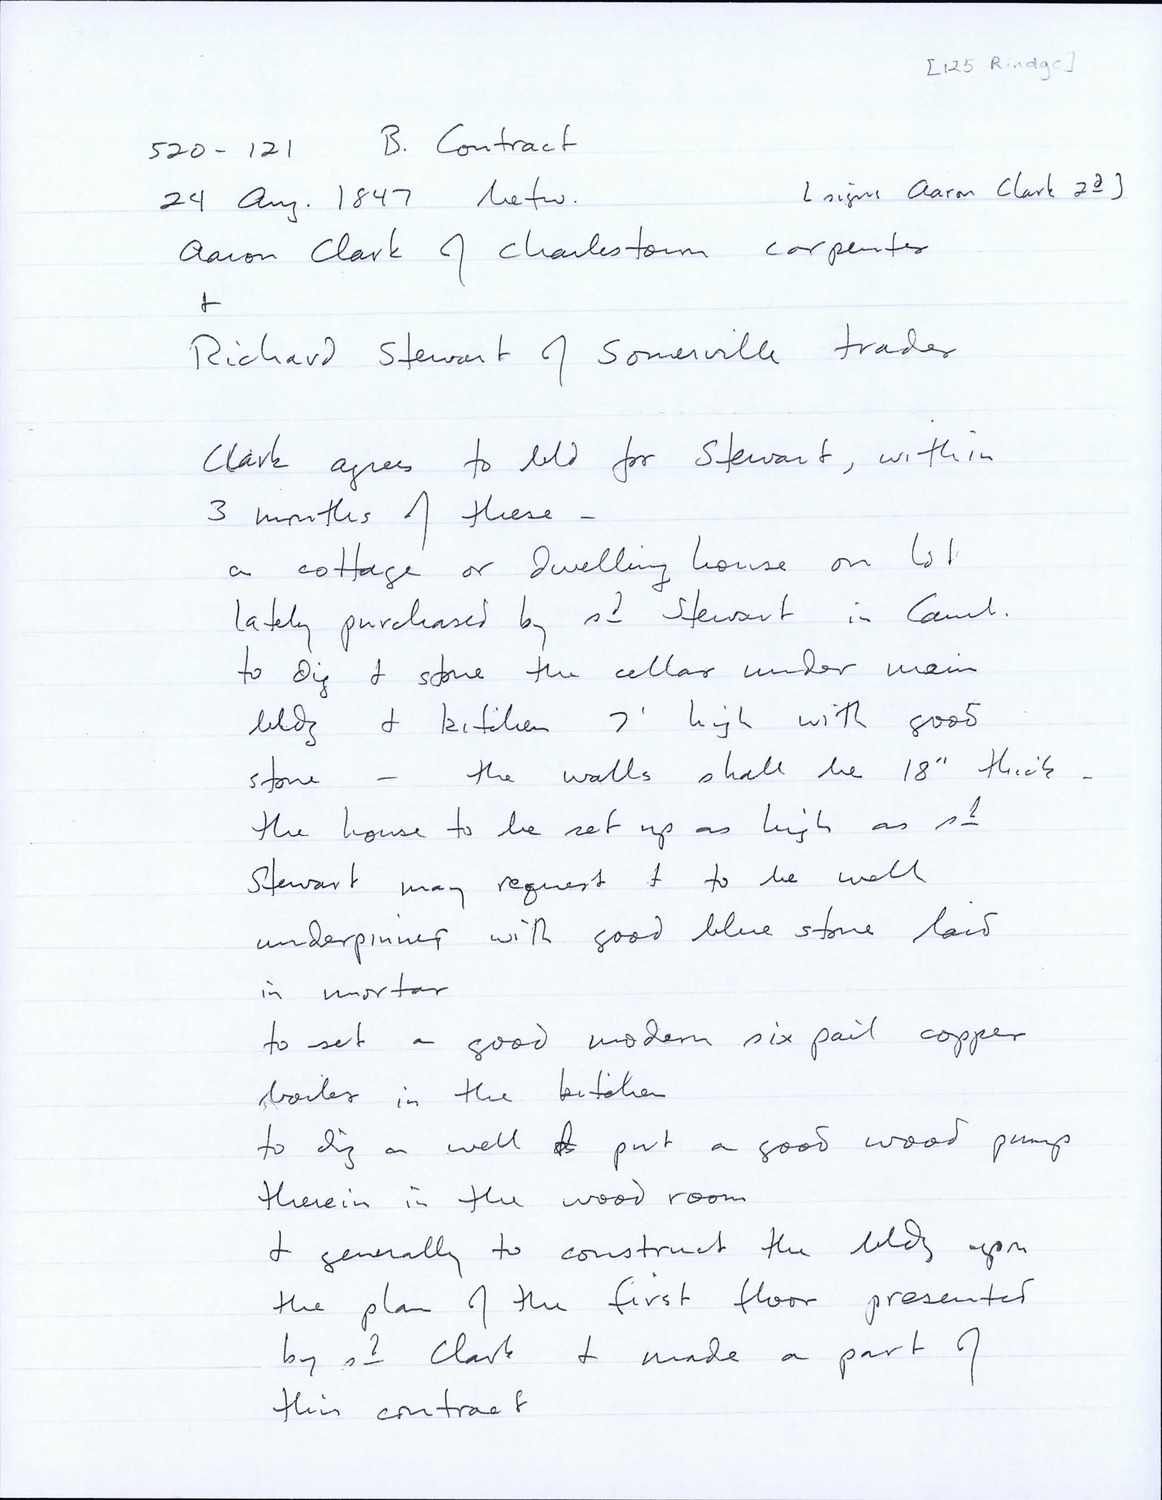 [125 Rindge]
520-121 B. Contract
24 Aug. 1847 betw. [signs Aaron Clark 2d]
Aaron Clark of Charlestown carpenter
+
Richard Stewart of Somerville trader
Clark agrees to bld for Stewart, within
3 months of these -
a cottage or dwelling house on lot
lately purchased by sd Stewart in Camb.
to dig + stone the cellar under main
bldg + kitchen 7' high with good
stone - the walls shall be 18" thick -
the house to be set up as high as sd
Stewart may request + to be well
underpinned with good blue stone laid
in mortar
to set a good modern six pail copper
boiler in the kitchen
to dig a well & put a good wood pump
therein in the wood room
+ generally to construct the bldg upon
the plan of the first floor presented
by sd Clark + made a part of
this contract